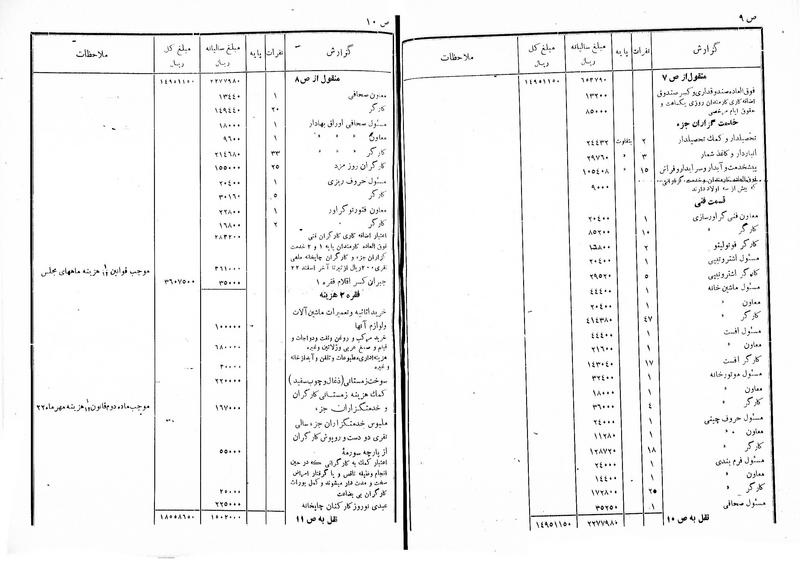 ص ۹
گزارش نفرات پایه مبلغ سالیانه ریال مبلغ کل ریال ملاحظات
منقول از ص ۷ ۶۰۳۷۹۰ ۱۴۹۵۱۱۵۰
فوق العاده صندوقداری و کسر صندوق ۱۳۲۰۰
اضافه کاری کارمندان روزی یکساعت و
حقوق ایام مرخصی ۸۵۰۰۰
خدمت گزاران جزء
تحصیلدار و کمک تحصیلدار ۲ متفاوت ۲۴۴۳۲
انباردار و کاغذ شمار ۳ » ۲۹۷۶۰
پیشخدمت و آبدار و سرایدار و فراش ۱۵ » ۱۰۵۴۰۸
فوق العاده کارمندان و خدمت گزارانی
که بیش از سه اولاد دارند ۹۰۰۰
قسمت فنی
معاون فنی گراورسازی ۱ ۲۰۴۰۰
کارگر » ۱۰ ۸۵۲۰۰
کارگر فوتولیتو ۲ ۱۵۸۰۰
مسئول اشتروتیپی ۱ ۲۰۴۰۰
کارگر اشتروتیپی ۵ ۲۹۵۲۰
مسئول ماشین خانه ۱ ۴۴۴۰۰
معاون » ۱ ۲۰۴۰۰
کارگر » ۴۷ ۴۱۴۳۸۰
مسئول افست ۱ ۴۴۴۰۰
معاون » ۱ ۲۱۶۰۰
کارگر افست ۱۷ ۱۴۳۰۴۰
مسئول موتورخانه ۱ ۳۲۴۰۰
معاون » ۱ ۱۸۰۰۰
کارگر » ۴ ۳۶۰۰۰
مسئول حروف چینی ۱ ۲۴۰۰۰
معاون » » ۱ ۱۱۲۸۰
کارگر » ۱۸ ۱۲۸۷۲۰
مسئول فرم بندی ۱ ۲۴۰۰۰
معاون » ۱ ۱۴۴۰۰
کارگر » ۲۵ ۱۷۲۸۰۰
مسئول صحافی ۱ ۳۵۲۵۰
نقل به ص ۱۰ ۲۲۷۷۹۸۰ ۱۴۹۵۱۱۵۰
ص ۱۰
گزارش نفرات پایه مبلغ سالیانه ریال مبلغ کل ریال ملاحظات
منقول از ص ۸ ۲۲۷۷۹۸۰ ۱۴۹۵۱۱۵۰
معاون صحافی ۱ ۱۳۴۴۰
کارگر » ۲۰ ۱۴۹۴۴۰
مسئول صحافی اوراق بهادار ۱ ۱۸۰۰۰
معاون » » » ۱ ۹۶۰۰
کارگر » » » ۳۳ ۲۱۴۶۸۰
کارگران روز مزد ۲۵ ۱۵۵۰۰۰
مسئول حروف ریزی ۱ ۲۰۴۰۰
کارگر » » ۵ ۳۰۱۶۰
معاون فتوروتوگراور ۱ ۲۲۸۰۰
کارگر » ۲ ۱۶۸۰۰
اعتبار اضافه کاری کارگران فنی ۲۸۳۲۰۰
فوق العاده کارمندان پایه ۱ و ۲ خدمت
گزاران جزء و کارگران چاپخانه ماهی
نفری ۲۰۰ ریال از تیر تا آخر اسفند ۲۲ ۳۶۱۰۰۰ موجب قوانین ۱/۱۲ هزینه ماههای مجلس
جبران کسر اقلام فقره ۱ ۳۵۰۰۰ ۳۶۰۷۵۰۰
فقره ۲ هزینه
خرید اثاثیه و تعمیرات ماشین آلات
و لوازم آنها ۱۰۰۰۰۰
خرید مرکب و روغن و نفت و دواجات و
فیلم و صمغ عربی و ژلاتین و غیره ۶۸۰۰۰۰
هزینه اداری و مطبوعات و تلفن و آبدارخانه
و غیره ۲۰۰۰۰
سوخت زمستانی (ذغال و چوب سفید) ۲۲۰۰۰۰
کمک هزینه زمستانی کارگران
و خدمتگزاران جزء ۱۶۷۰۰۰ موجب ماده دوم قانون ۱/۱۲ هزینه مهر ماه ۲۲
ملبوس خدمتگزاران جزء سالی
نفری دو دست و روپوش کارگران
از پارچه سورمه ۵۵۰۰۰
اعتبار کمک به کارگرانی که در حین
انجام وظیفه ناقص و یا گرفتار امراض
سخت و مدت دار میشوند و کمک بوراث
کارگران بی بضاعت ۲۵۰۰۰
عیدی نوروز کارکنان چاپخانه ۲۲۵۰۰۰
نقل به ص ۱۱ ۱۵۰۲۰۰۰ ۱۸۵۵۸۶۵۰